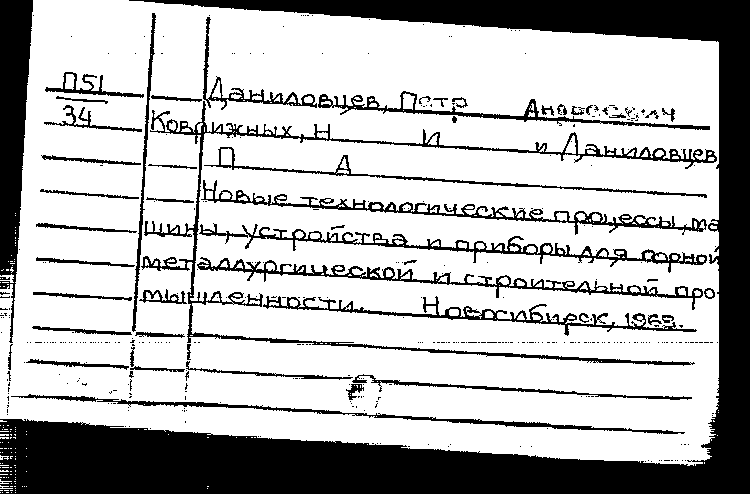 П51 Даниловцев, Петр Андреевич
34 Коврижных, Н И и Даниловцев,
П А
Новые технологические процессы, ма
шины, устройства и приборы для горной
металлургической и строительной про-
мышленности. Новосибирск, 1968.